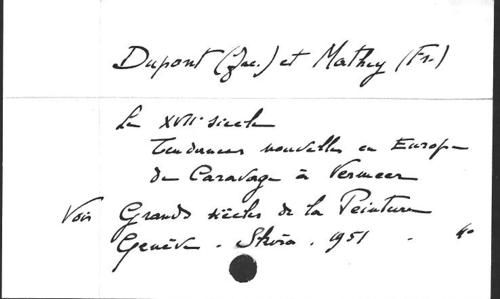 Dupont (Jac.) et Mathey (Fr.)
Le XVIIe siècle
Tendances nouvelles en Europe
de Caravage à Vermeer
Voir Grands siècles de la Peinture
Genève . Skira . 1951 . 4°